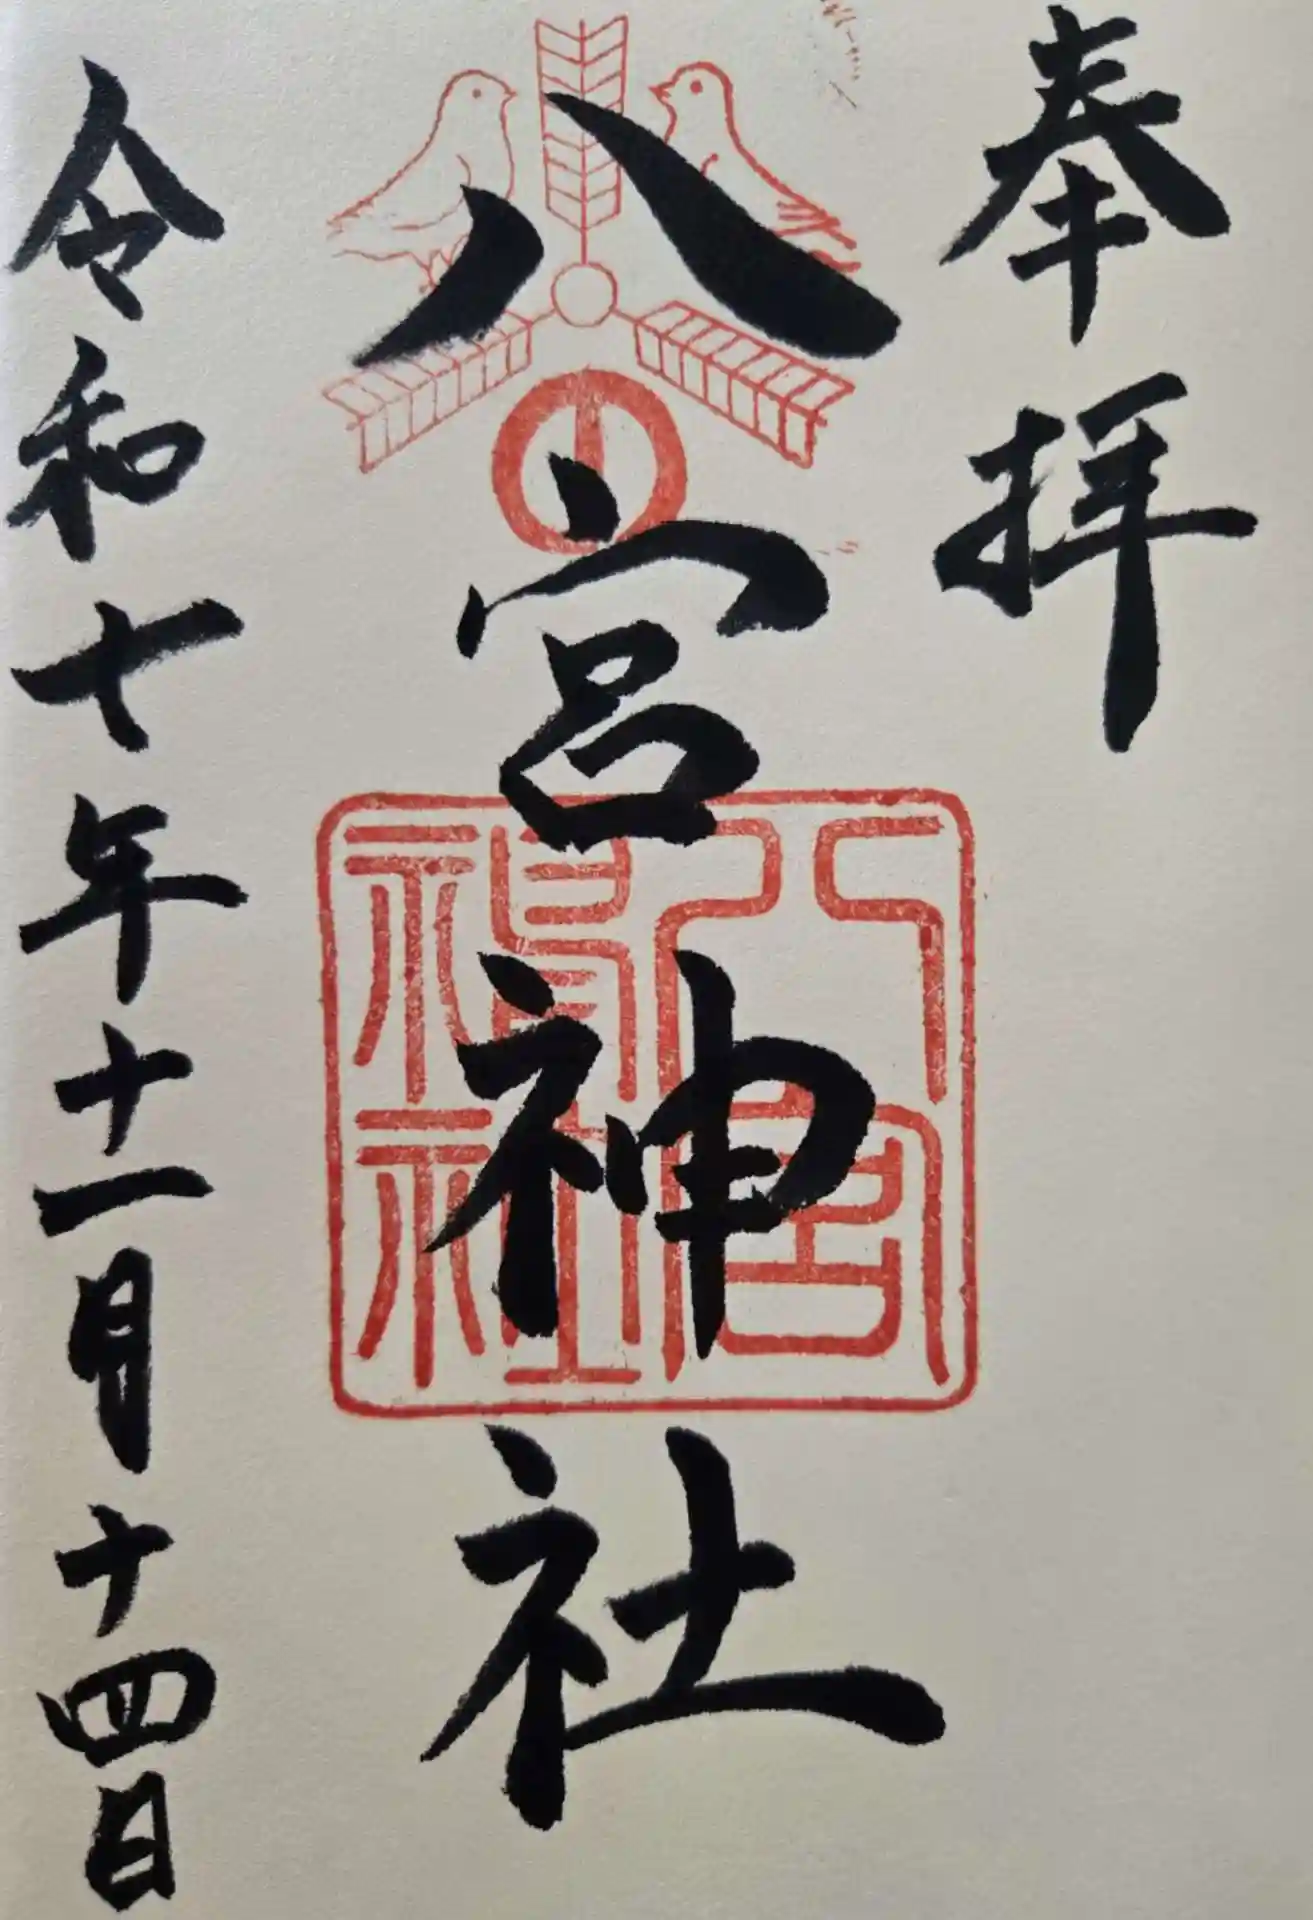 奉拝
八宮神社
令和七年十一月十四日
八宮
神社